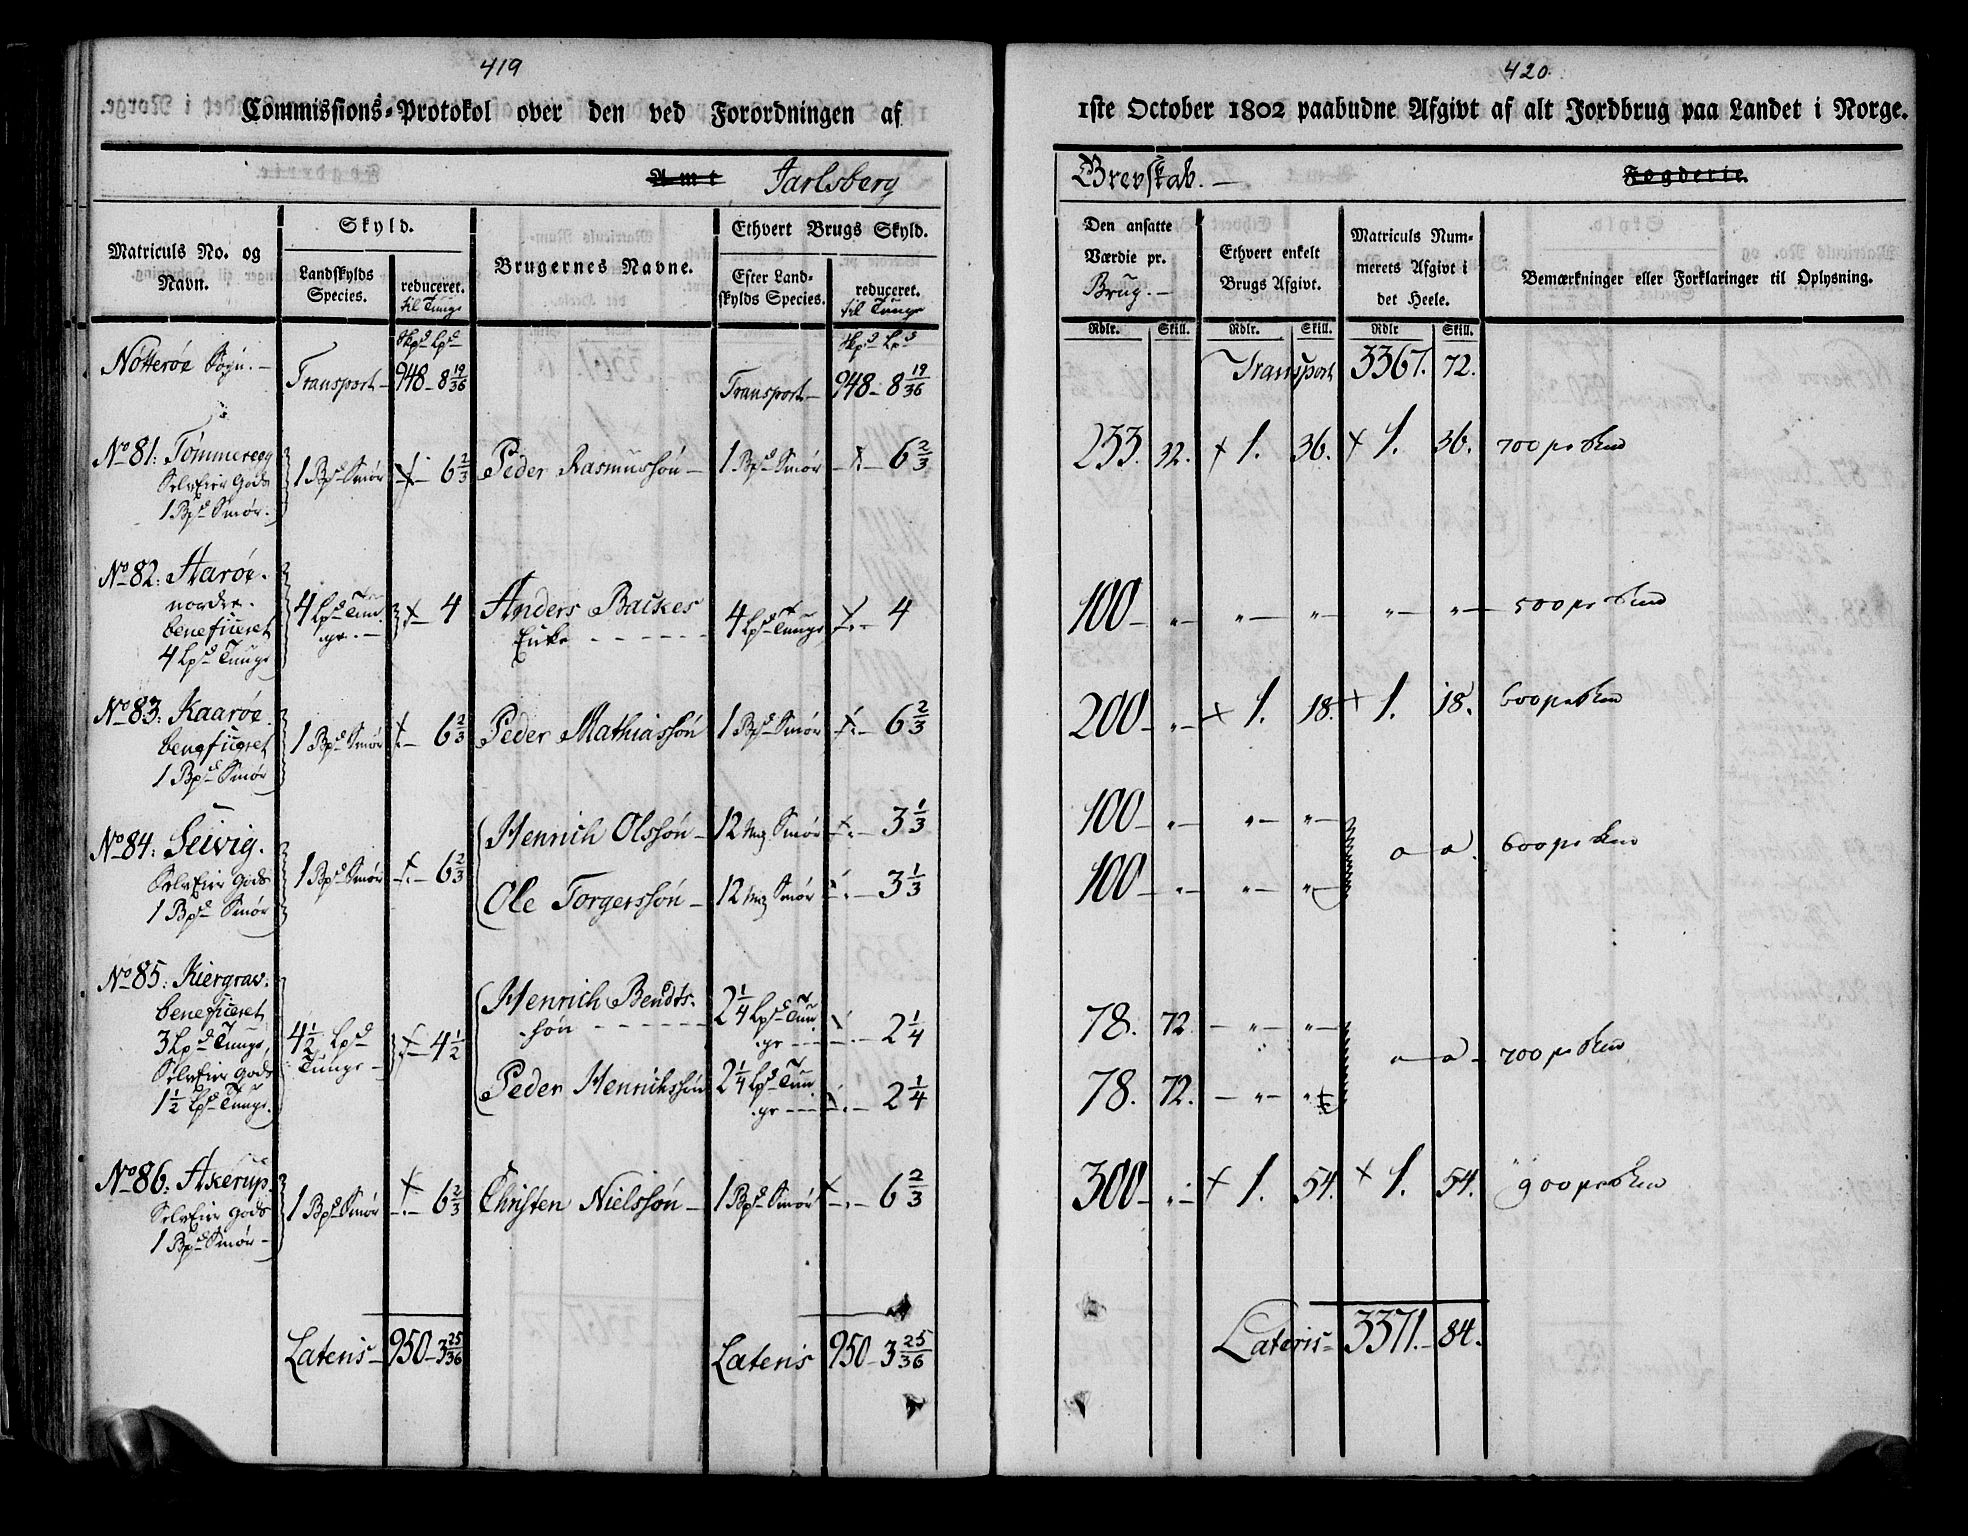 419
Commissions-Protokol over den ved Forordningen af
Amt Jarlsberg
Matriculs No. og Navn.
Skyld.
Landskylds Species.
reduceret. til Tunge
Brugernes Navne.
Ethvert Brugs Skyld.
Efter Landskylds Species.
reduceret. til Tunge
Nötteröe Sogn.
Skpd Lpd
Skpd Lpd
Transport 948 - 8 19/36 Transport 948 - 8 19/36
No 81: Tömmeregg
SelvEier Gods
1 Bpd Smör.
1 Bpd Smör 6 2/3 Peder Rasmussön 1 Bpd Smör 6 2/3
No 82: Aaröe.
nordre.
beneficeret
4 Lpd Tunge
4 Lpd Tunge 4 Anders Backes Enke 4 Lpd Tunge 4
No 83: Kaaröe.
beneficeret
1 Bpd Smör
1 Bpd Smör 6 2/3 Peder Mathiassön 1 Bpd Smör 6 2/3
No 84: Seivig.
SelvEier Gods
1 Bpd Smör
1 Bpd Smör 6 2/3 Henrich Olssön 12 Mrg Smör 3 1/3
Ole Torgerssön 12 Mrg Smör 3 1/3
No 85: Kiergrav.
beneficeret
3 Lpd Tunge,
SelvEier Gods
1 1/2 Lpd Tunge.
4 1/2 Lpd Tunge 4 1/2 Henrich Bendtssön 2 1/4 Lpd Tunge 2 1/4
Peder Henrichssön 2 1/4 Lpd Tunge 2 1/4
No 86: Akerup.
SelvEier Gods
1 Bpd Smör
1 Bpd Smör 6 2/3 Christen Nielssön 1 Bpd Smör 6 2/3
Lateris 950 - 3 25/36 Lateris 950 - 3 25/36
420.
1ste October 1802 paabudne Afgivt af alt Jordbrug paa Landet i Norge.
Grevskab. Fogderie.
Den ansatte Værdie pr. Brug.
Ethvert enkelt Brugs Afgivt.
Matriculs Nummerets Afgivt i det Heele.
Bemærkninger eller Forklaringer til Oplysning.
Rdlr. Skill. Rdlr. Skill. Rdlr Skill.
Transport 3367. 72.
233. 32. + 1. 36. + 1. 36. 700 pr Skud
100 - " - " - " - " - " - 500 pr Skud
200 - " - + 1. 18. + 1. 18. 600 pr Skud
100 - " - " - " -
100 - " - " - " - 600 pr Skud
78. 72 - " - " -
78. 72. - " - " 700 pr Skud
300 - " - + 1. 54. + 1. 54. 900 pr Skud
Lateris 3371. 84.